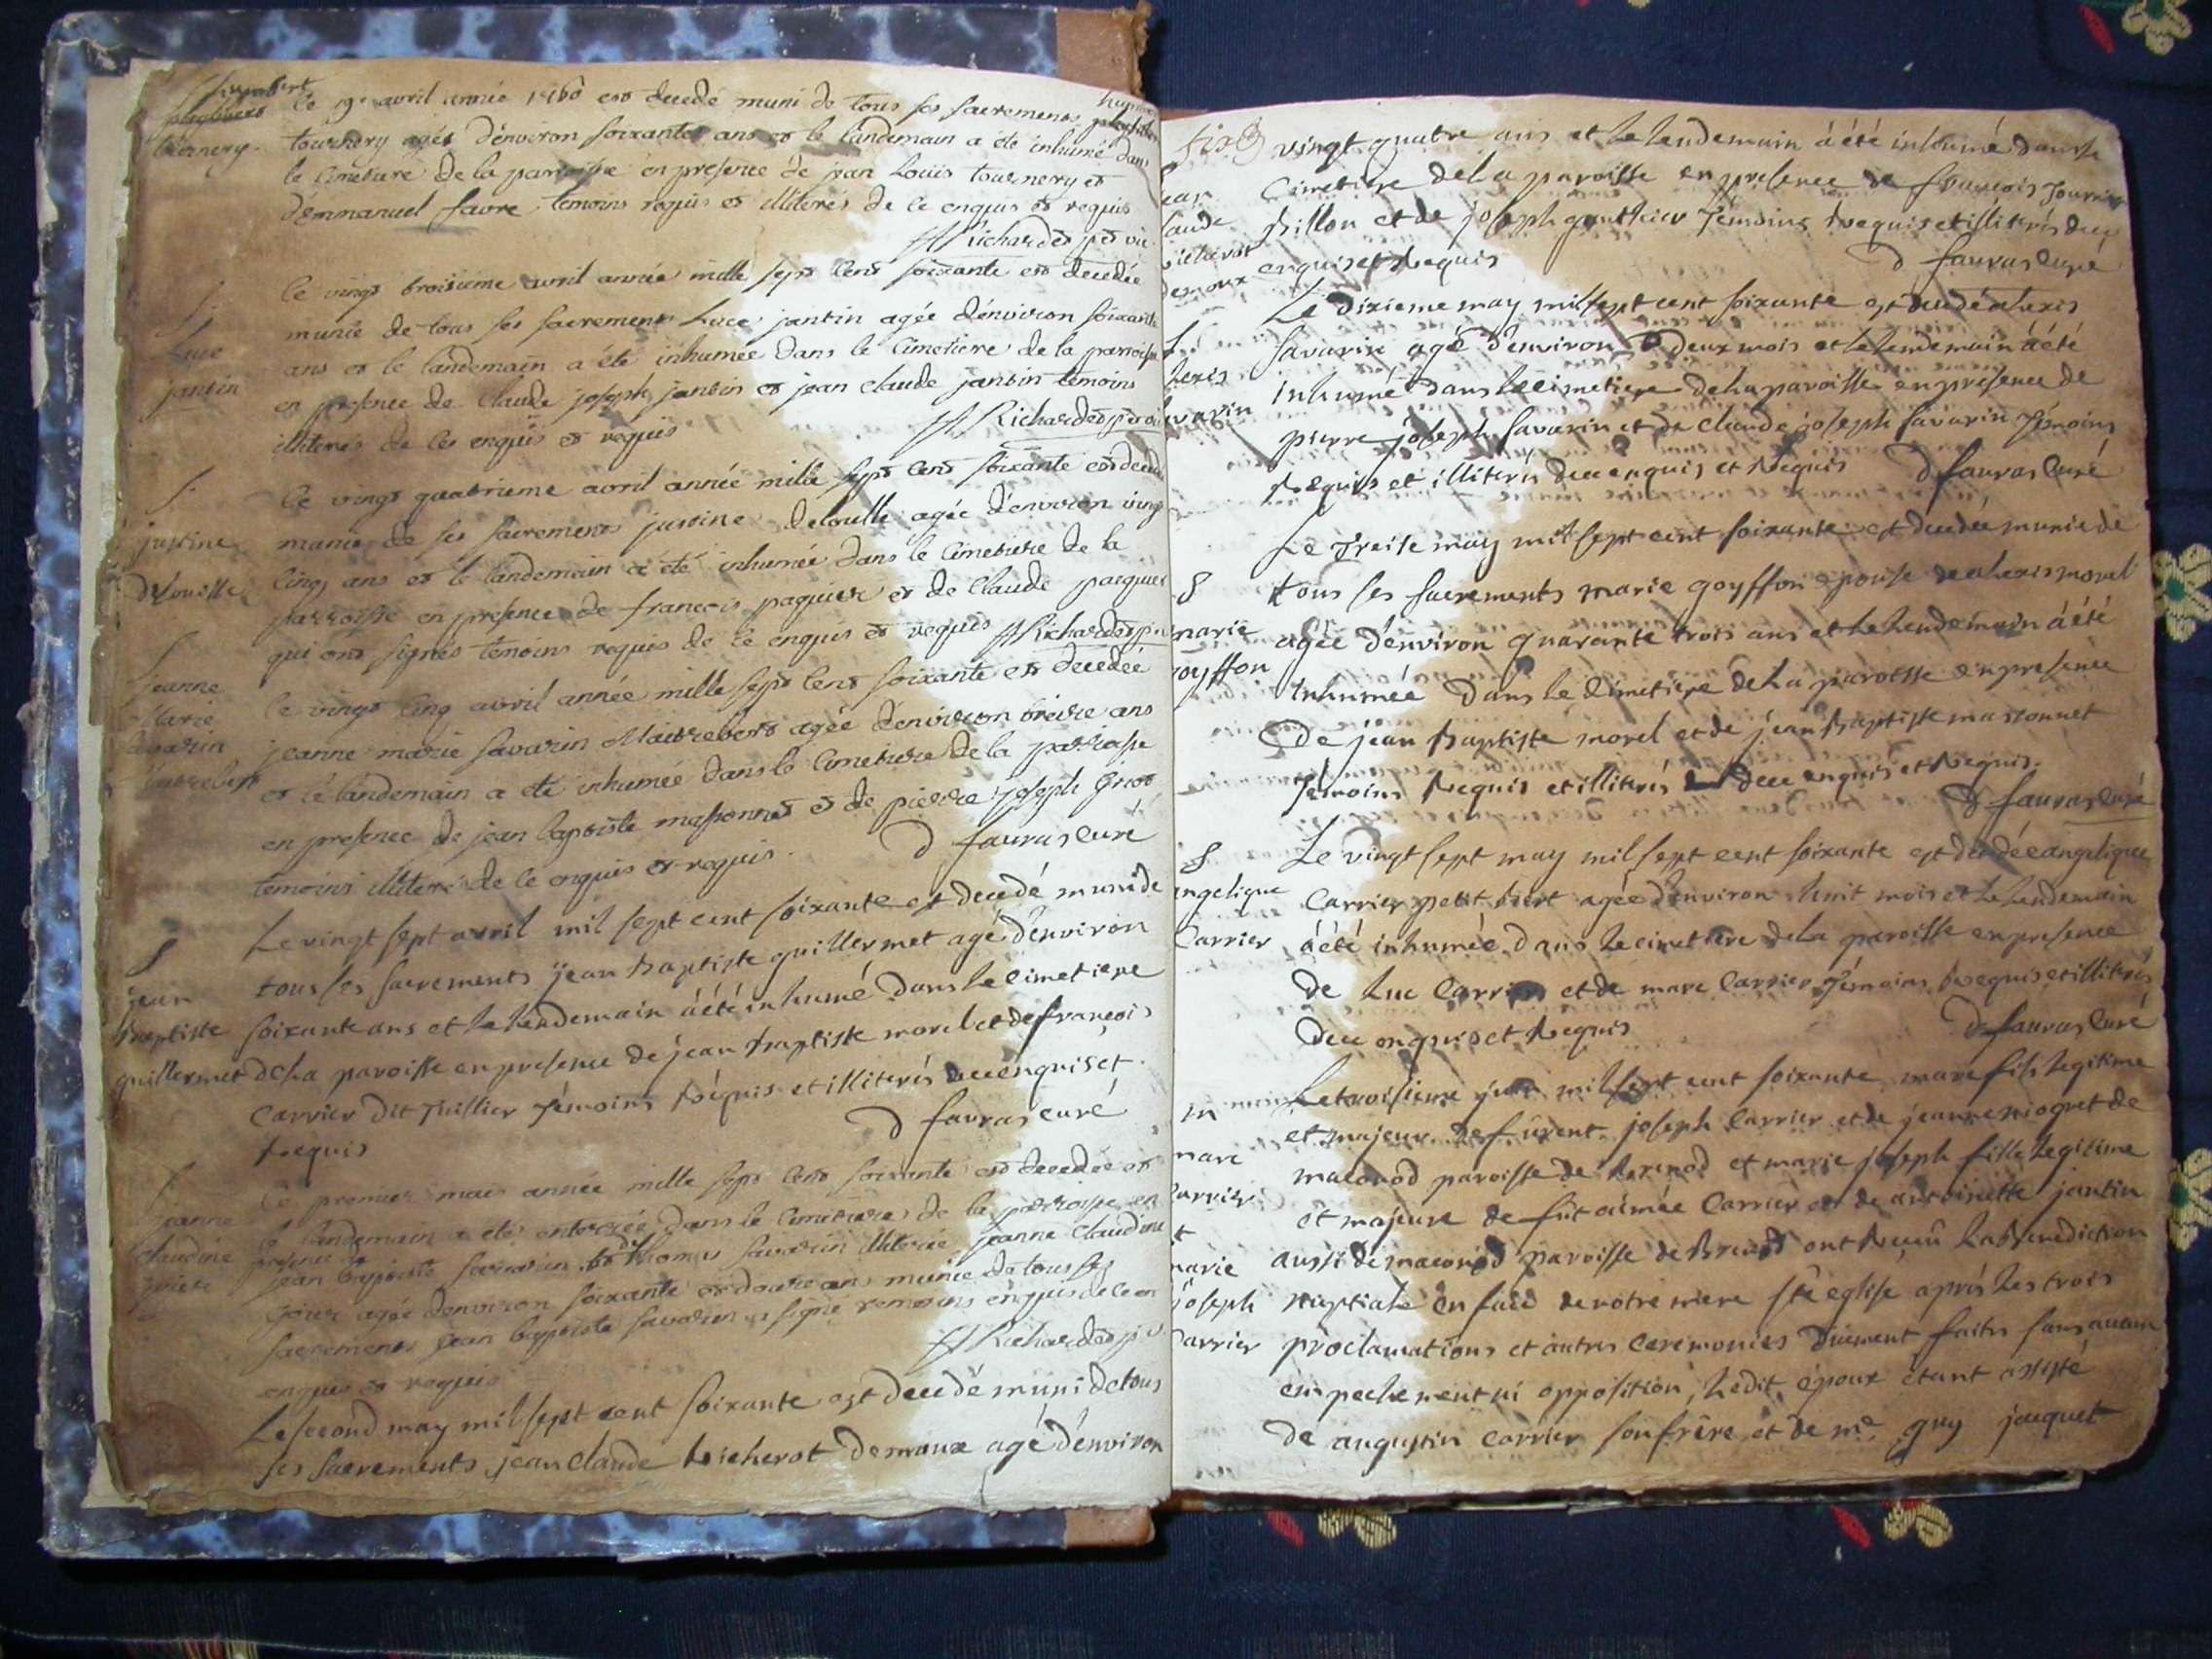 humbert
tournery
le 19e avril année 1760 est decedé muni de tous ses sacremens
tournery agés d'environ soixantes ans et le landemain a été inhumé dans
le Cimetiere de la parroisse en presence de jean Louïs tournery et
d'emmanuel favre temoins requis et illiterés de ce enquis et requis
Richard
S.
Luce
jantin
le vingt troisieme avril année mille sept cent soixante est decedée
munie de tous ses sacremens Luce jantin agée d'environ soixante
ans et le landemain a été inhumée dans le Cimetiere de la parroisse
en presence de Claude joseph jantin et jean claude jantin temoins
illiterés de ce enquis et requis
Richard
S.
justine
delouille
le vingt quatrieme avril année mille sept cent soixante est decedé
munie de ses sacremens justine delouille agée d'environ vingt
Cinq ans et le landemain a été inhumée dans le Cimetiere de la
parroisse en presence de francois paquier et de Claude paquier
qui ont signés temoins requis de ce enquis et requis Richard
S
jeanne
Marie
savarin
Maitrebert
le vingt Cinq avril année mille sept cent soixante est decedée
jeanne marie savarin Maitrebert agée d'environ treize ans
et le landemain a été inhumée dans le Cimetiere de la parroisse
en presence de jean baptiste massonnet et de pierre joseph
temoins illiteré de ce enquis et requis. D fauras curé
S
jean
baptiste
guillermet
Le vingt sept avril mil sept cent soixante est decedé muni de
tous les sacrements jean baptiste guillermet agé d'environ
soixante ans et le lendemain a été inhumé dans le cimetiere
de la paroisse en presence de jean baptiste morel et de françois
carrier dit juillier témoins réquis et illiterés de ce enquis et
requis
D fauras curé
S
jeanne
claudine
le premier mais année mille sept cent soixante est decedée et
le landemain a été enterrée dans le cimetiere de la parroisse en
presence de
jean baptiste savarin et de thomas savarin illiterée jeanne claudine
agée denviron soixante et douze ans munie de tous ses
sacremens jean baptiste savarin a signé temoins enquis de ce en
enquis et requis
Richard
Le second may mil sept cent soixante est decedé muni de tous
ses sacrements, jean claude bicherot demoux agé d'environ
vingt quatre ans et le lendemain a été inhumé dans le
Cimetiere de la paroisse en presence de francois
billon et de joseph gauthier témoins requis et illiterés de ce
enquis et requis
D fauras curé
Le dixieme may mil sept cent soixante est decedé alexis
savarin agé d'environ deux mois et le lendemain a été
inhumé dans le cimetiere de la paroisse en presence de
pierre joseph savarin et de claude joseph savarin témoins
requis et illiterés de ce enquis et requis D fauras Curé
S
marie
goyffon
Le treise may mil sept cent soixante est decedée munie de
tous ses sacrements marie goyffon epouse de alexis morel
agée d'environ quarante trois ans et le lendemain a été
inhumée dans le cimetiere de la paroisse en presence
de jean baptiste morel et de jean baptiste massonnet
témoins requis et illiterés de ce enquis et requis.
D fauras curé
S
angelique
Carrier
Le vingt sept may mil sept cent soixante est decedée angelique
carrier petit agée d'environ huit mois et le lendemain
a été inhumée dans le cimetiere de la paroisse en presence
de Luc Carrier et de marc Carrier témoins requis et illiterés
de ce enquis et requis D fauras Curé
m
marc
carrier
et
marie
joseph
carrier
Le troisieme juin mil sept cent soixante marc fils legitime
et majeur de furent joseph Carrier et de jeanne niogret de
maconod paroisse de brenod et marie joseph fille legitime
et majeure de fut aimée Carrier et de antoinette jantin
aussi de maconod paroisse de Brenod ont reçeu la benediction
nuptiale en face de nôtre mere ste eglise aprés les trois
proclamations et autres ceremonies duement faites sans aucun
empechement ni opposition, ledit époux étant assisté
de augustin carrier son frère et de me guy jacquet